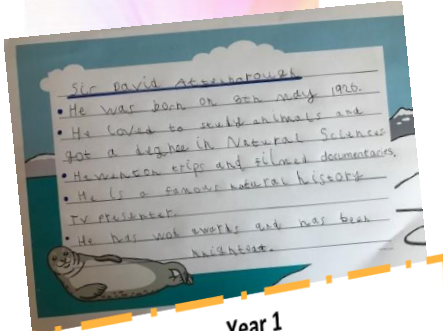 Sir David Attenborough
• He was born on 8th May 1926.
• He loved to study animals and
got a degree in Natural Sciences
• He went on trips and filmed documentaries.
• He is a famous natural history
TV presenter.
• He has won awards and has been
knighted.
Year 1